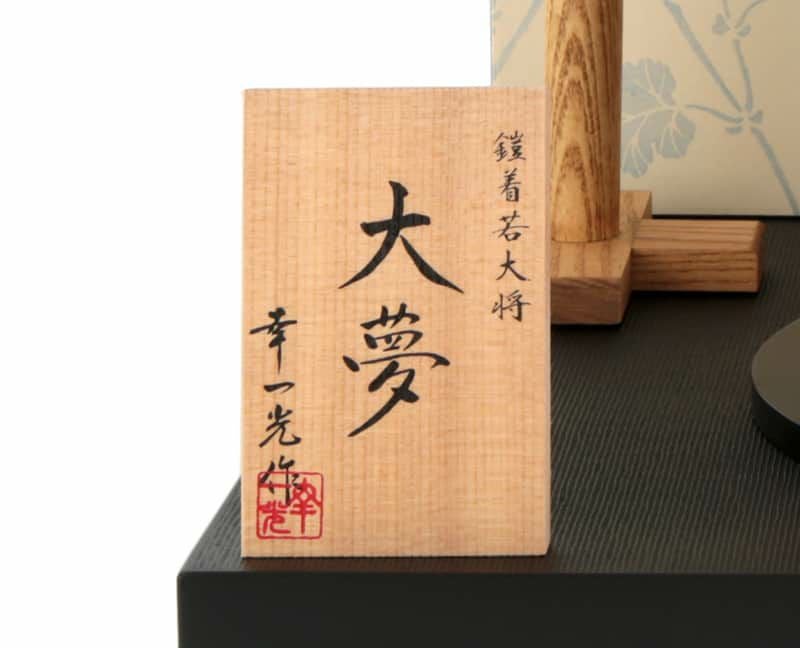 鎧着若大将
大夢
幸一光作
幸一光